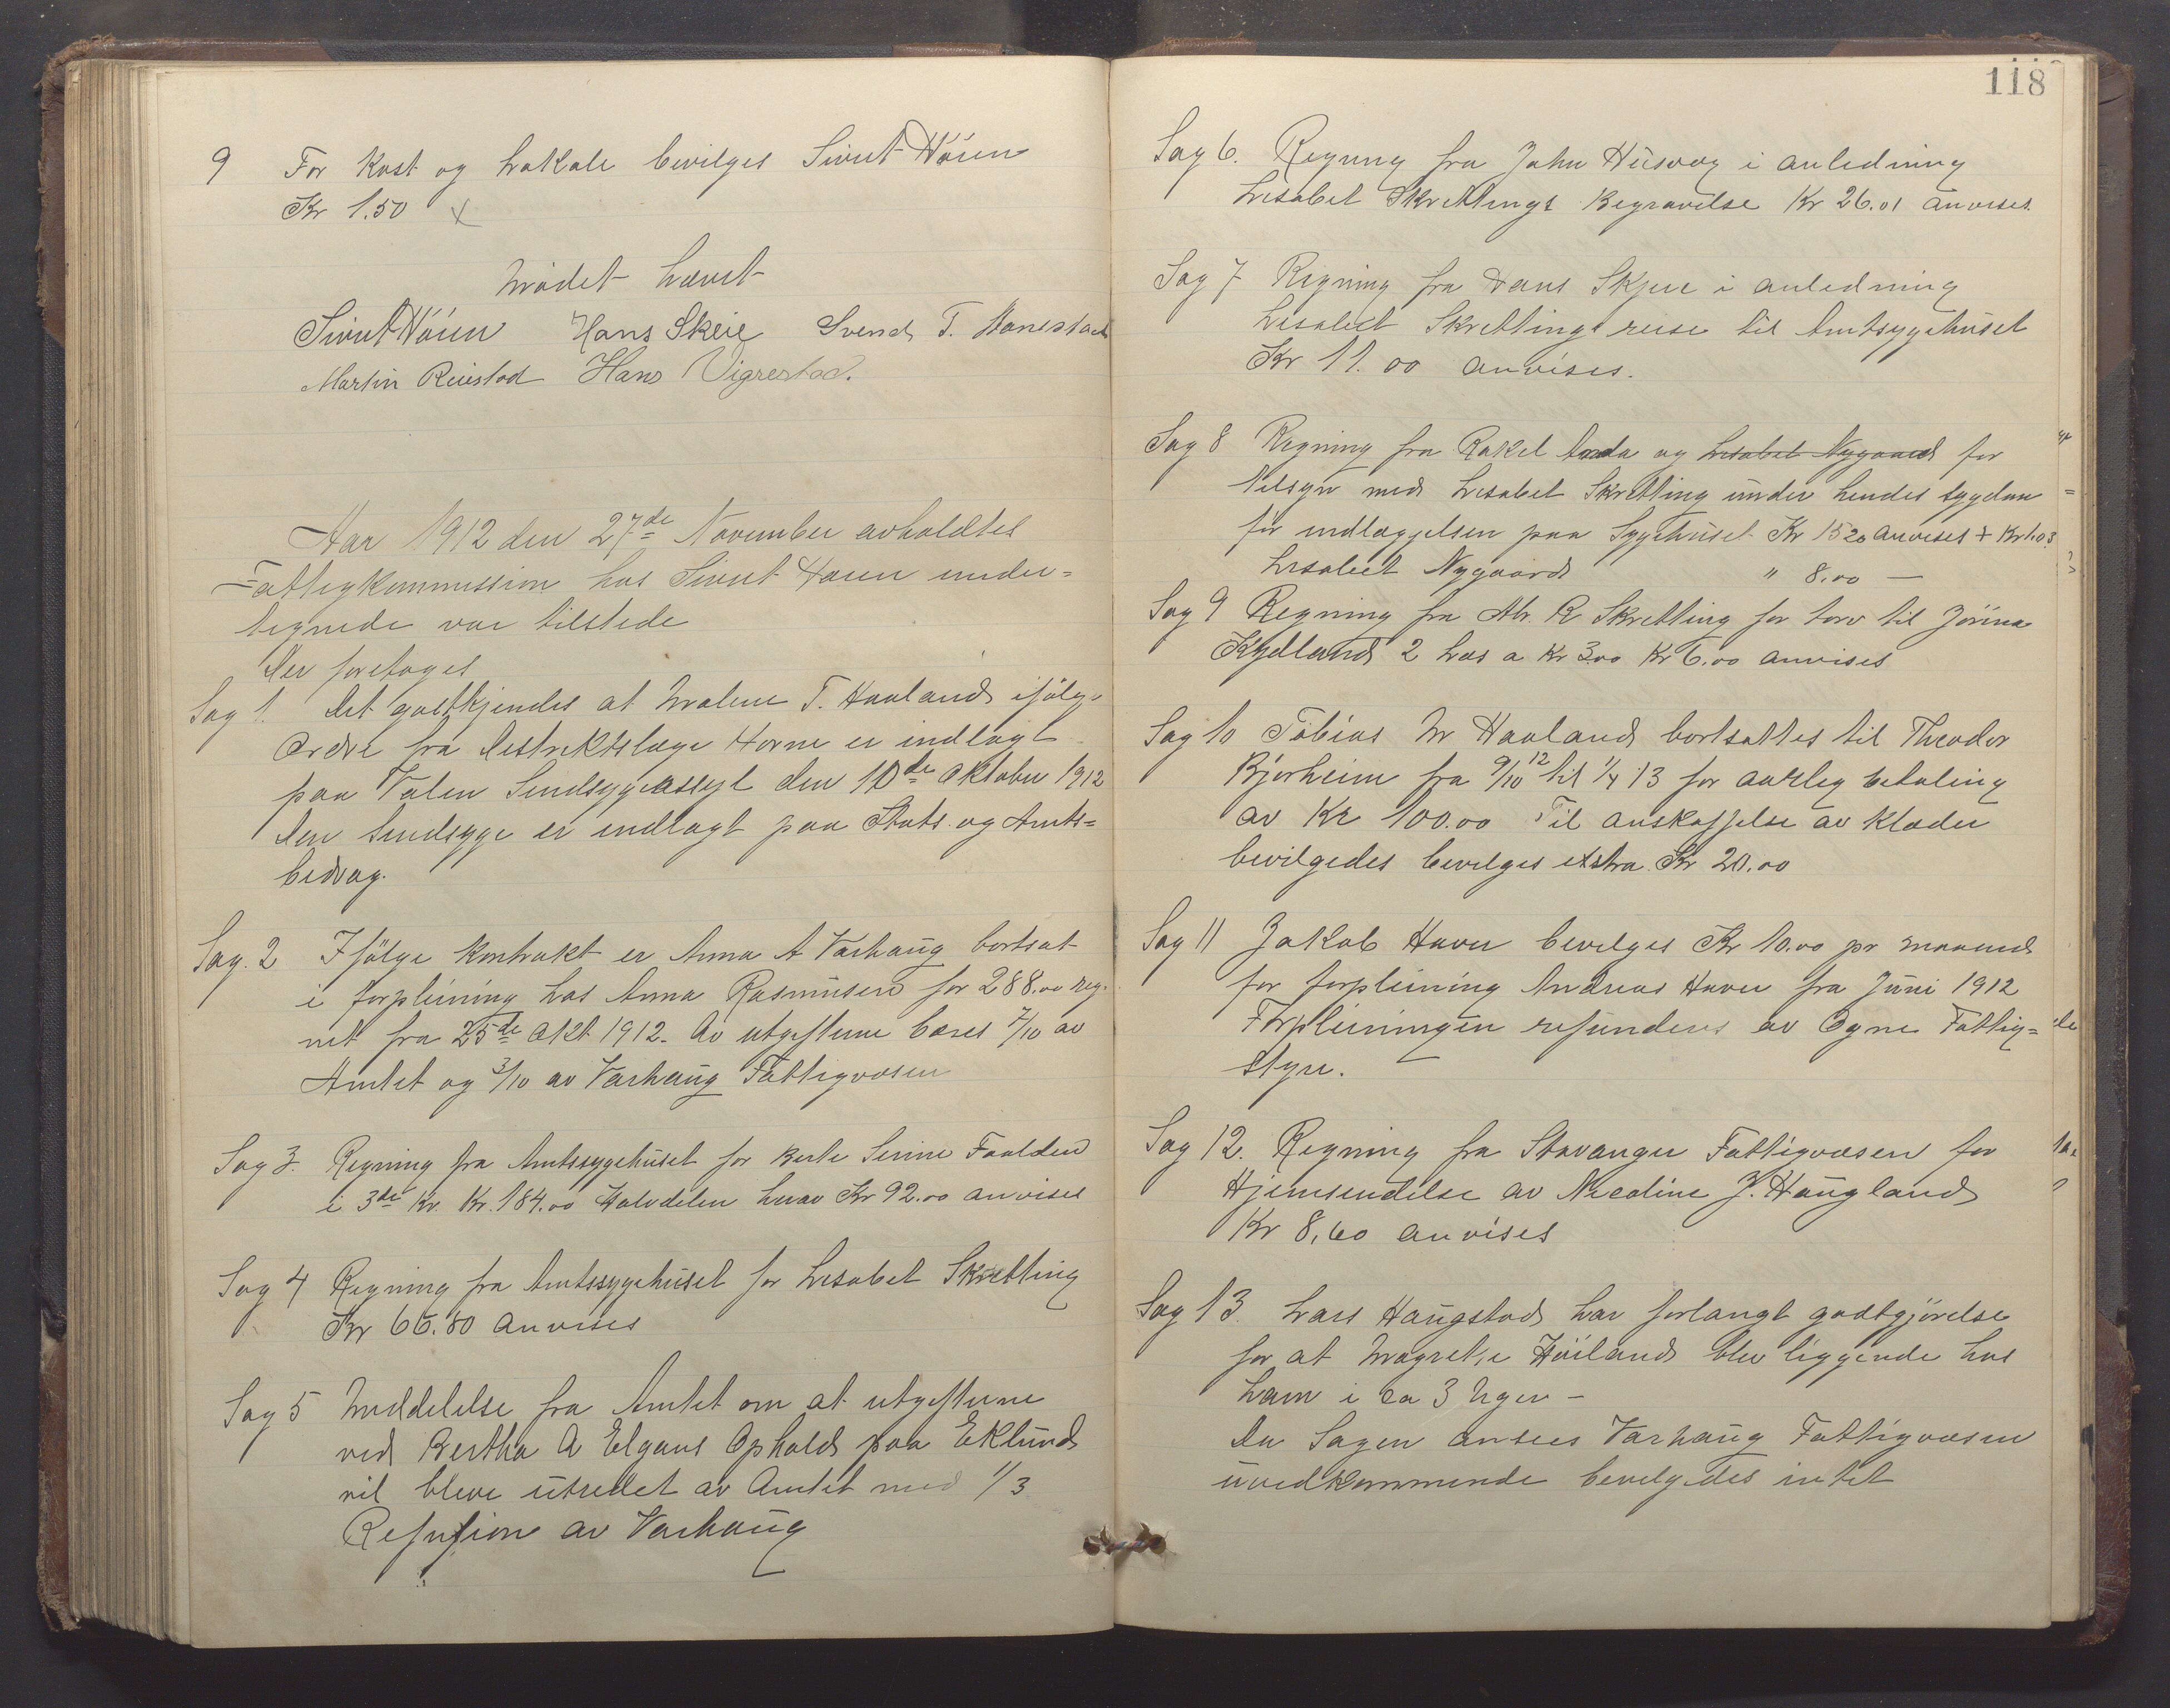 9 For Kost og Lokale bevilges Sivert Høien
Kr 1.50 x
Mødet hævet
Sivert Høien Hans Skeie Svend T. Stavestad
Martin Reiestad Hans Vigrestad.
Aar 1912 den 27de November avholdtes
Fattigkommission hos Sivert Høien under=
tegnede var tilstede
Der foretoges
Sag 1. Det godtkjendes at Malene T. Haaland ifølge
Ordre fra Destriktslæge Horne er indlagt
paa Valen Sindsygeassyl den 10de Oktober 1912
Den Sindsyge er indlagt paa Stats. og Amts=
bedrag.
Sag. 2 Ifølge Kontrakt er Anna A Varhaug bortsat
i forpleining hos Anna Rasmussen for 288.00 reg-
net fra 25de Okt 1912. Av utgifterne bæres 7/10 av
Amtet og 3/10 av Varhaug Fattigvæsen
Sag 3. Regning fra Amtssygehuset for Berte Serine
i 3de Kv. Kr. 184.00 Halvdelen herav Kr 92.00 anvises
Sag 4 Regning fra Amtssygehuset for Lisabet Skretting
Kr 66.80 anvises
Sag 5 Meddelelse fra Amtet om at utgifterne
ved Bertha A Elgane Ophold paa Eklund
vil bleve utredet av Amtet med 1/3
Refusion av Varhaug
118
Sag 6. Regning fra John Husvæg i anledning
Lisabet Skrettings Begravelse Kr 26.01 anvises
Sag 7 Regning fra Hans Skjeie i anledning
Lisabet Skrettings reise til Amtsygehuset
Kr 11.00 anvises.
Sag 8 Regning fra Rakel Anda og Lisabet Nygaard for
tilsyn med Lisabet Skretting under hendes sygdom
før indlæggelsen paa Sygehuset Kr 15 20 anvises
Lisabeet Nygaard " 8.00 —
Sag 9 Regning fra Abr. R Skretting for torv til Jørina
Kydland 2 Læs a Kr 3.00 Kr 6.00 anvises
Sag 10 Tobias M Haaland bortsattes til Theodor
Bjorheim fra 9/10 12 til 1/4 13 for aarlig betaling
av Kr 100.00 Til anskaffelse av Klæder
bevilgedes bevilges ekstra Kr 20.00
Sag 11 Jakob Haver bevilges Kr 10.00 pr maaned
for forpleining Andreas Haver fra Juni 1912
Forpleiningen refunderes av Ogne Fattig=
styre.
Sag 12. Regning fra Stavanger Fattigvæsen for
Hjemsendelse av Nicoline J. Haugland
Kr 8,60 anvises
Sag 13. Lars Haugstad har forlangt godtgjørelse
for at Magret,e Høiland blev liggende hos
ham i ca 3 Uger –
Da Sagen ansees Varhaug Fattigvæsen
uvedkommende bevilgedes intet